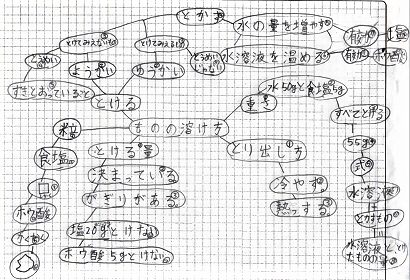 とかす
水の量を増やす
有効
塩
水溶液を温める
有効
ホウ酸
とけてみえない
とけてみえる
とうめい
ようかい
ゆうかい
とうめいじゃない
すきとおっていること
とける
ものの溶け方
粒
食塩
ホウ酸
とける量
決まっている
かぎりがある
塩20gとけない
ホウ酸5gとけない
重量
水50gと食塩5g
すべてとける
55g
式
水溶液
とかすもの
水溶液ととかしたものの量
とり出し方
冷やす
熱っする